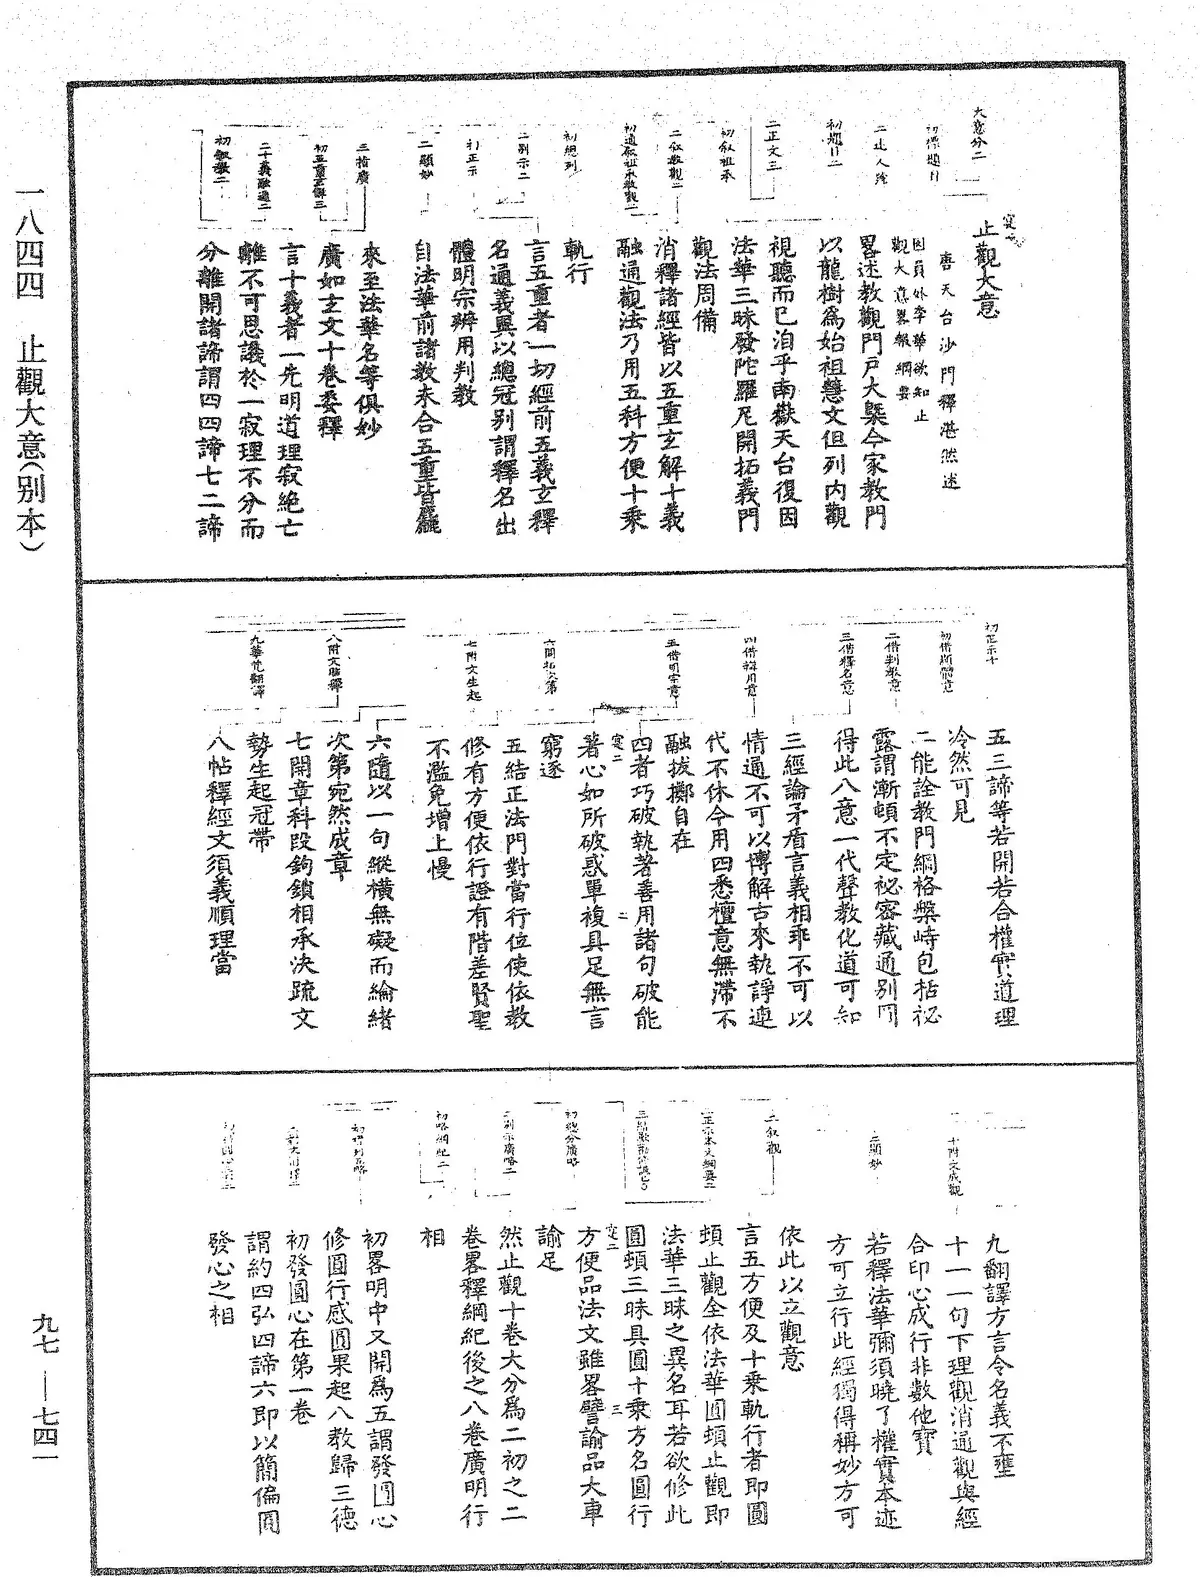 一八四四 止觀大意(别本)
大意分二
初標題目
二述人號
初題目二
二正文三
初叙祖承
二叙教觀二
初通叙祖承教觀二
初總列
二別示二
初正示
二顯妙
三指廣
初五重玄解三
二十義融通二
初叙教二
止觀大意
唐天台沙門釋湛然述
因員外李華欲知止
觀大意畧報綱要
畧述教觀門戶大槩今家教門
以龍樹為始祖慧文但列內觀
視聽而已洎乎南嶽天台復因
法華三昧發陀羅尼開拓義門
觀法周備
消釋諸經皆以五重玄解十義
融通觀法乃用五科方便十乘
軌行
言五重者一切經前五義玄釋
名通義異以總冠別謂釋名出
體明宗辨用判教
自法華前諸教未合五重皆麤
來至法華名等俱妙
廣如玄文十卷委釋
言十義者一先明道理寂絶亡
離不可思議於一寂理不分而
分離開諸諦謂四四諦七二諦
初正示十
初借顯體意
二借判教意
三借釋名意
四借辯用意
五借明宗意
六開拓次第
七附文生起
八附文貼釋
九華梵翻譯
五三諦等若開若合權實道理
冷然可見
二能詮教門綱格槩峙包括祕
露謂漸頓不定祕密藏通別圓
得此八意一代聲教化道可知
三經論矛盾言義相乖不可以
情通不可以博解古來執諍連
代不休今用四悉檀意無滯不
融拔擲自在
四者巧破執著善用諸句破能
著心如所破惑單複具足無言
窮逐
五結正法門對當行位使依教
修有方便依行證有階差賢聖
不濫免增上慢
六隨以一句縱橫無礙而綸緒
次第宛然成章
七開章科段鉤鎖相承決疏文
勢生起冠帶
八帖釋經文須義順理當
十附文成觀
二顯妙
二叙觀
初總分廣略
二別示廣略二
初略綱紀二
九翻譯方言令名義不壅
十一一句下理觀消通觀與經
合印心成行非數他寶
若釋法華彌須曉了權實本迹
方可立行此經獨得稱妙方可
依此以立觀意
言五方便及十乘軌行者即圓
頓止觀全依法華圓頓止觀即
法華三昧之異名耳若欲修此
圓頓三昧具圓十乘方名圓行
方便品法文雖畧譬諭品大車
諭足
然止觀十卷大分為二初之二
卷畧釋綱紀後之八卷廣明行
相
初畧明中又開為五謂發圓心
修圓行感圓果起八教歸三德
初發圓心在第一卷
謂約四弘四諦六即以簡偏圓
發心之相
九七 — 七四一